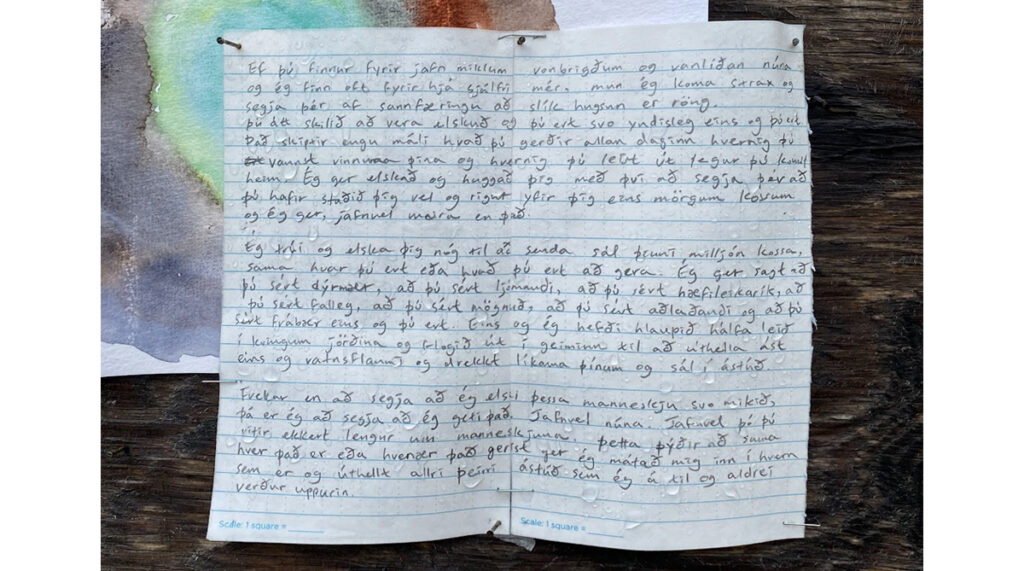 Ef þú finnur fyrir jafn miklum vonbrigðum og vanlíðan núna
og ég finn oft fyrir hjá sjálfri mér. mun ég koma strax og
segja þér af sannfæringu að slík hugsun er röng.
þú átt skilið að vera elskuð og þú ert svo yndisleg eins og þú ert.
Það skiptir engu máli hvað þú gerðir allan daginn hvernig þú
vannst vinnuna þína og hvernig þú leist út þegar þú komst
heim. Ég get elskað og huggað þig með því að segja þér að
þú hafir staðið þig vel og rignt yfir þig eins mörgum kossum
og ég get, jafnvel meira en það.
Ég trúi og elska þig nóg til að senda sál þinni milljón kossa,
sama hvar þú ert eða hvað þú ert að gera. Ég get sagt að
þú sért dýrmæt, að þú sért ljómandi, að þú sért hæfileikarík, að
þú sért falleg, að þú sért mögnuð, að þú sért aðlaðandi og að þú
sért frábær eins og þú ert. Eins og ég hefði hlaupið hálfa leið
í kringum jörðina og flogið út í geiminn til að úthella ást
eins og vatnsflaumi og drekkt líkama þínum og sál í ástúð.
Frekar en að segja að ég elski þessa manneskju svo mikið,
þá er ég að segja að ég geti það. Jafnvel núna. Jafnvel þó þú
vitir ekkert lengur um manneskjuna. Þetta þýðir að sama
hver það er eða hvenær það gerist get ég mátað mig inn í hvern
sem er og úthellt allri þeirri ástúð sem ég á til og aldrei
verður uppurin.
Scale: 1 square = ______ Scale: 1 square = ______